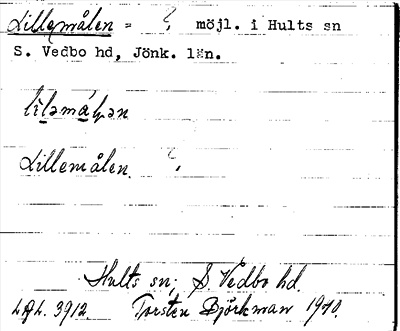 Lillemålen = ? möjl. i Hults sn
S. Vedbo hd, Jönk. län.
Lillemålen. ?
Hults sn; S Vedbo hd.
L.A.L. 3912. Torsten Björkman 1940.